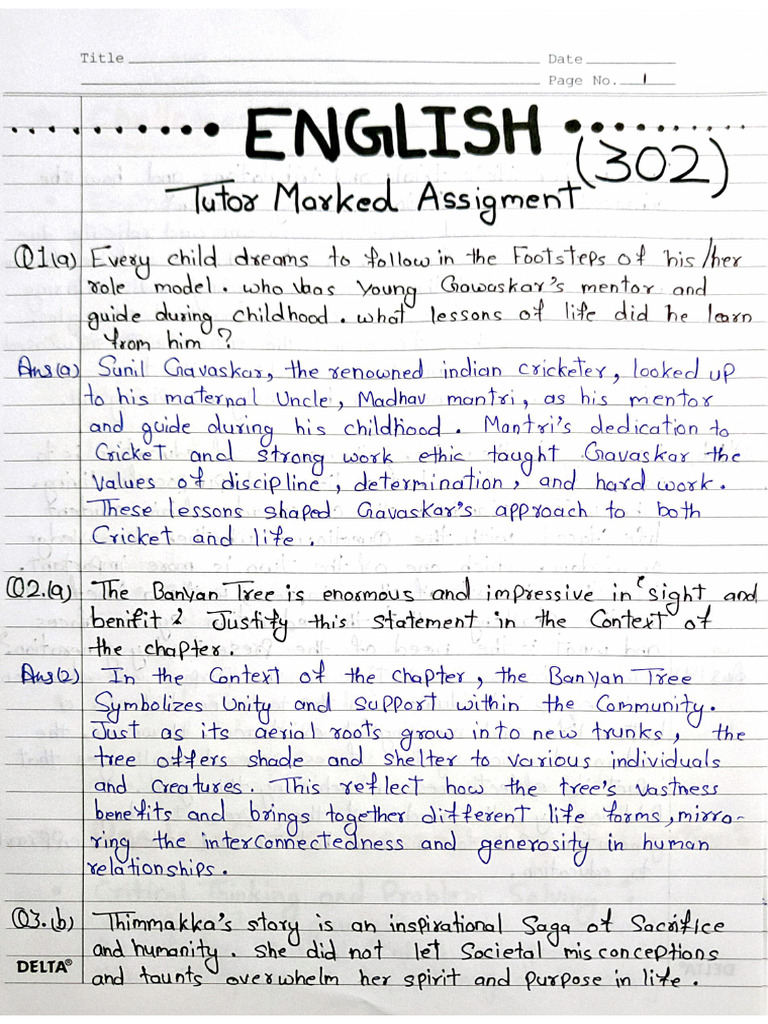 Title Date
Page No. 1
ENGLISH
(302)
Tutor Marked Assigment
Q1(a) Every child dreams to follow in the Footsteps of his/her
role model. who was Young Gawaskar's mentor and
guide during childhood. what lessons of life did he learn
from him ?
Ans(a) Sunil Gavaskar, the renowned indian cricketer, looked up
to his maternal Uncle, Madhav mantri, as his mentor
and guide during his childhood. Mantri's dedication to
Cricket and strong work ethic taught Gavaskar the
values of discipline, determination, and hard work.
These lessons shaped Gavaskar's approach to both
Cricket and life.
Q2.(a) The Banyan Tree is enormous and impressive in 'sight and
benifit ? Justify this Statement in the Context of
the chapter.
Ans(2) In the Context of the chapter, the Banyan Tree
Symbolizes Unity and support within the Community.
Just as its aerial roots grow into new trunks, the
tree offers shade and shelter to various individuals
and creatures. This reflect how the tree's vastness
benefits and brings together different life forms, mirro-
ring the interconnectedness and generosity in human
relationships.
Q3.(b) Thimmakka's story is an inspirational Saga of Sacrifice
and humanity. she did not let Societal misconceptions
DELTA® and taunts overwhelm her spirit and purpose in life.